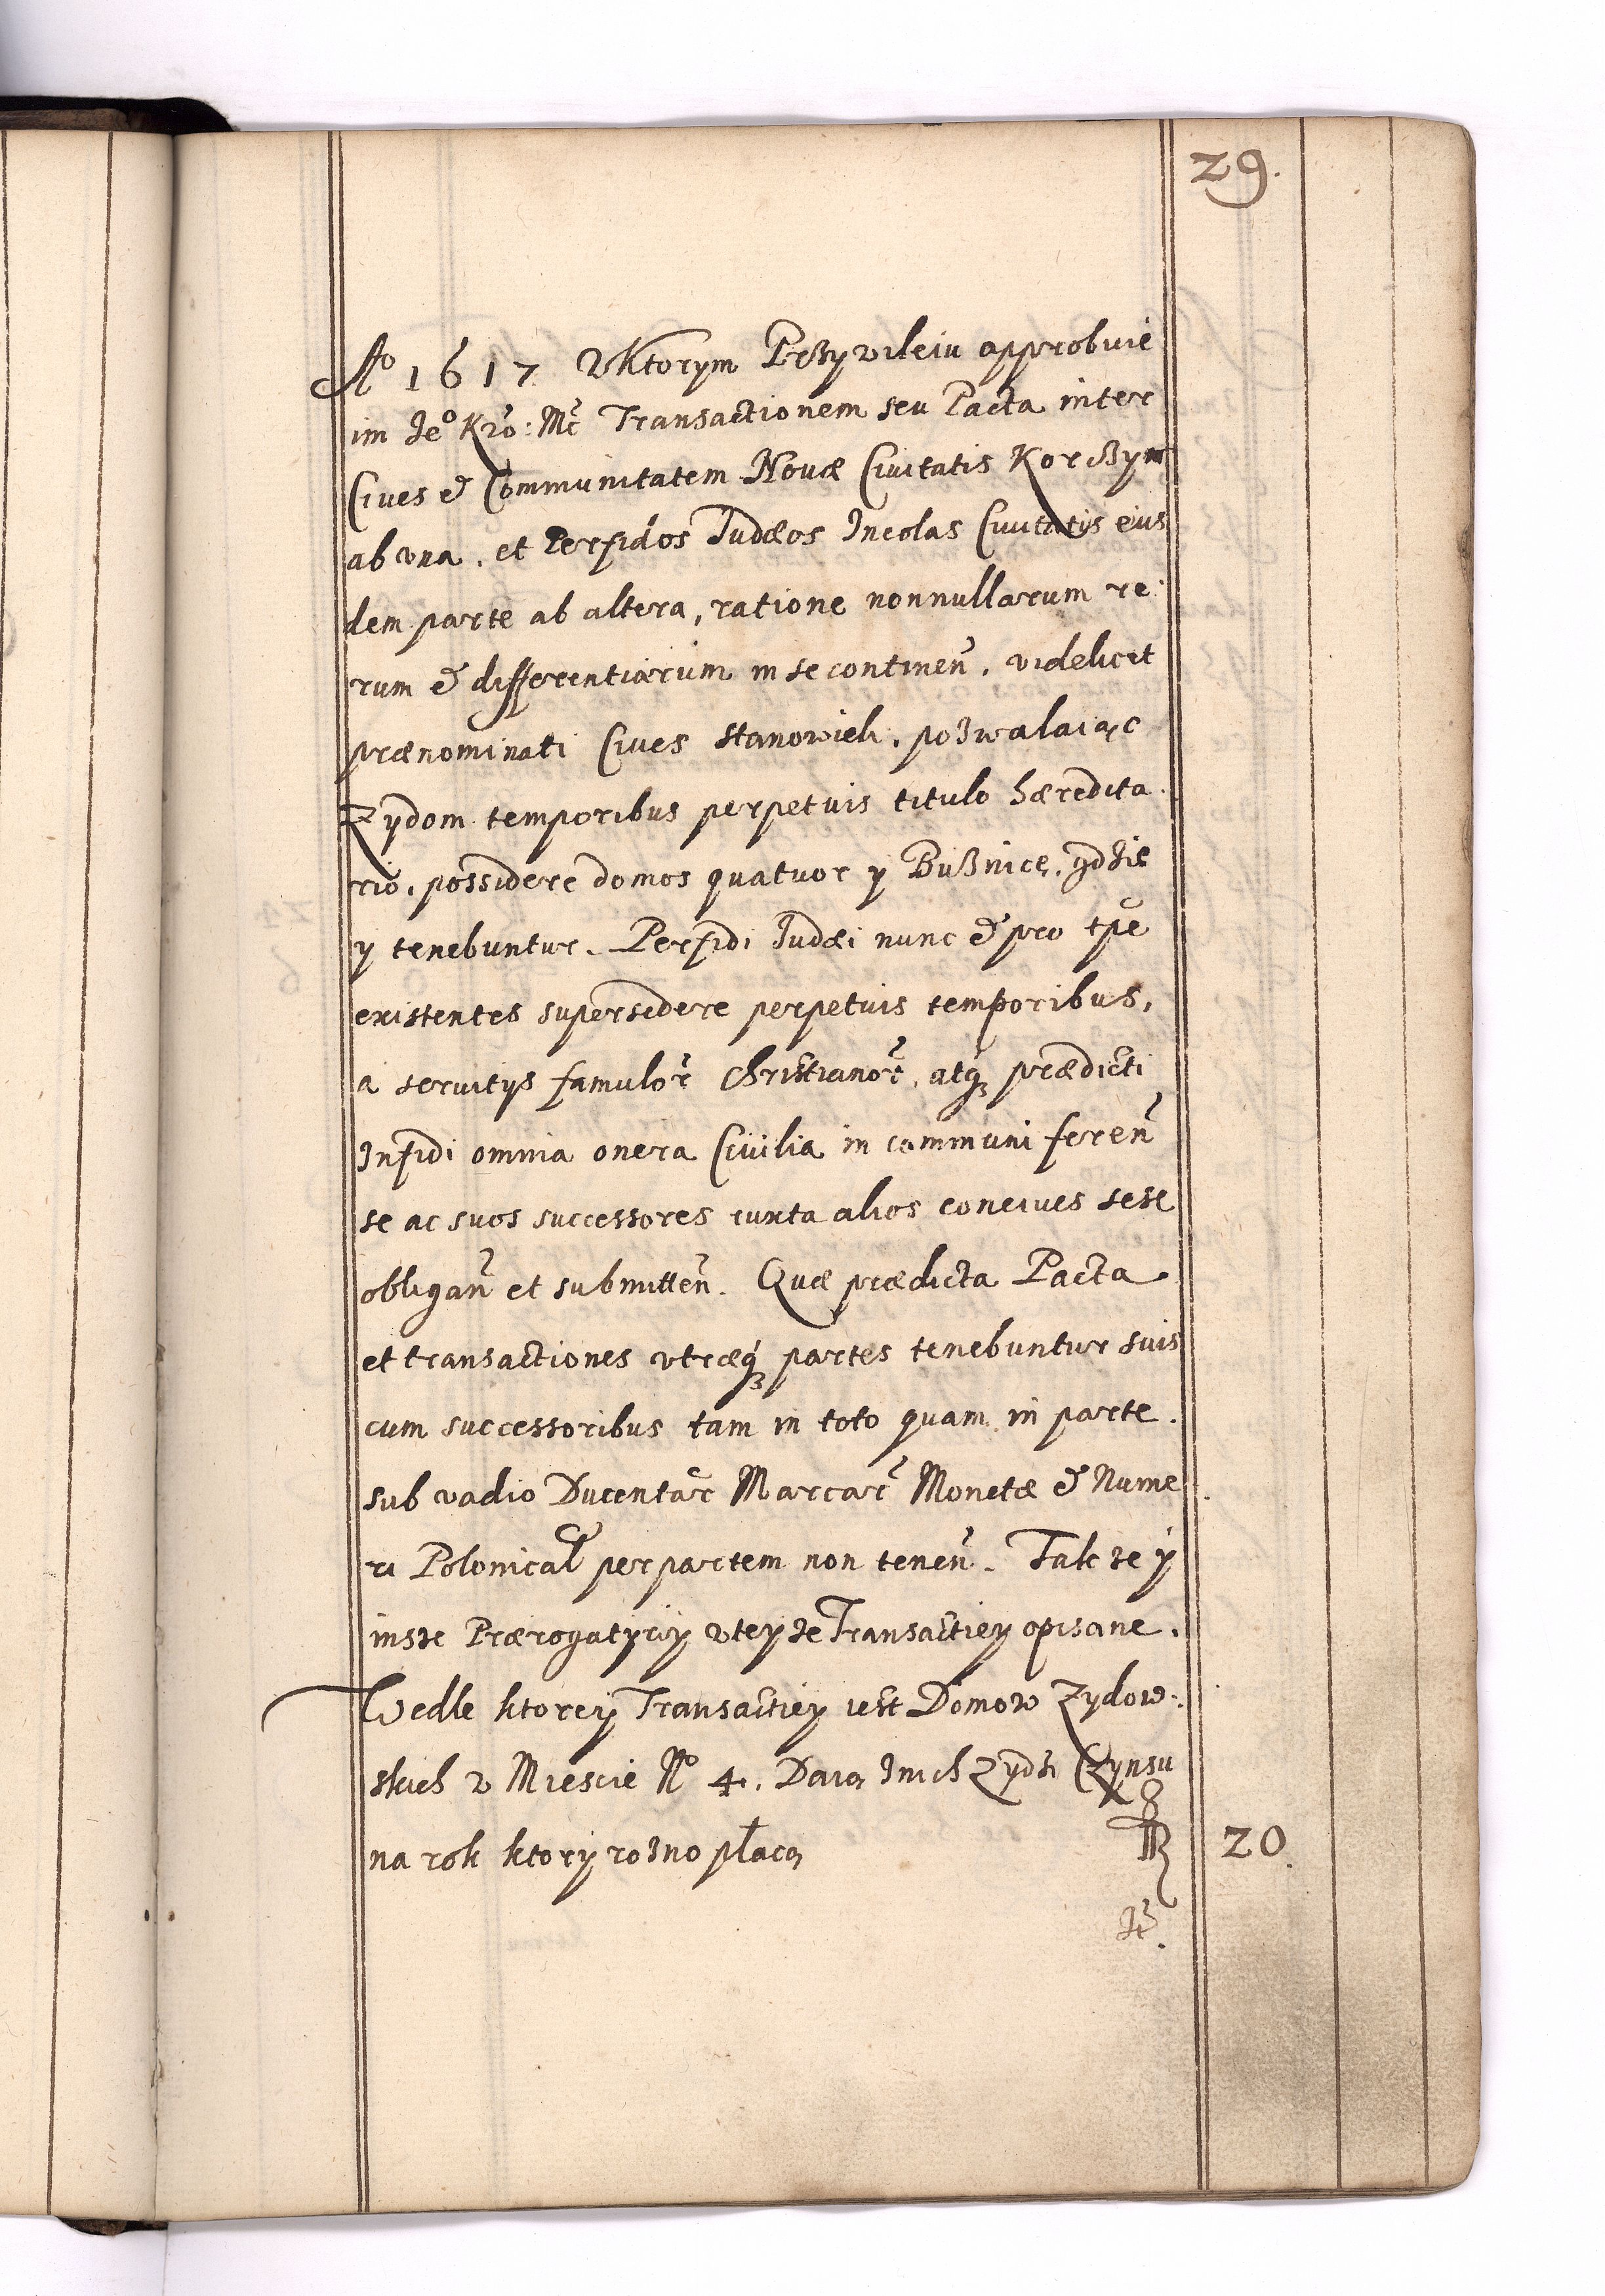 29.
Aº 1617 w ktorym Przywileiu approbuie
im Jeº Kró: Mć Transactionem seu Pacta inter
Ciues et Communitatem Nouæ Ciuitatis Korczyn
ab vna. et Perfidos Judæos Incolas Ciuitatis eius
dem parte ab altera, ratione nonnullarum re
rum et differentiarum in se continen̄. videlicet
prænominati Ciues stanowieli. pozwalaiąc
Zydom temporibus perpetuis titulo hæredita
rio. possidere domos quatuor y Bużnicę. gdzie
y tenebuntur. Perfidi Judæi nunc et pro tp̄e
existentes supersedere perpetuis temporibus,
a seruitys famulor̄ Christianor̄, atq̨ prædicti
Infidi omnia onera Ciuilia in communi feren̄
se ac suos successores iuxta alios conciues sese
obligan̄ et submitten̄. Quæ prædicta Pacta
et transactiones vtræq̨ partes tenebuntur suis
cum successoribus tam in toto quam in parte.
sub vadio Ducentar̄ Marcar̄ Monetæ et Nume
ri Polonical̄ per partem non tenen̄. Takze y
insze Prærogatywy w teyze Transactiey opisane.
Wedle ktorey Transactiey iest Domow Zydow-
skich w Miescie Nº 4. Daią Inich Zydzi Czynsu
na rok ktory rozno płacą
20.